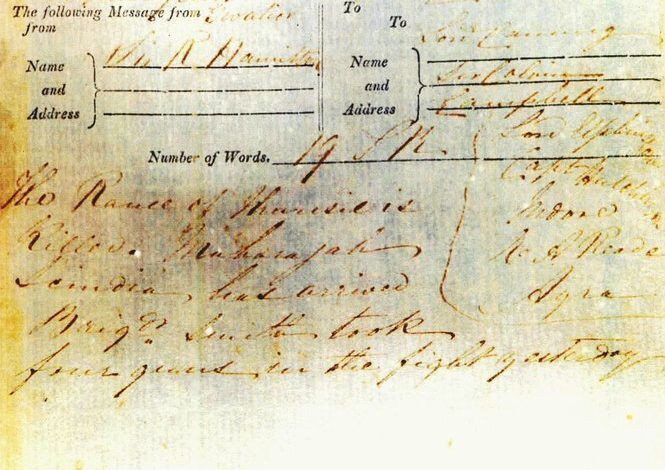 The following Message from Gwalior
from
Name
and
Address
Sir R Hamilton
To
To
Name
and
Address
Lord Canning
Sir Colin
Campbell
Lord
Capt
Indore
E. A Reade
Agra
Number of Words. 19 S R
The Ranee of Jhansie is
Killed. Maharajah
Scindia has arrived
Brigr. Smith took
four guns in the fight yesterday